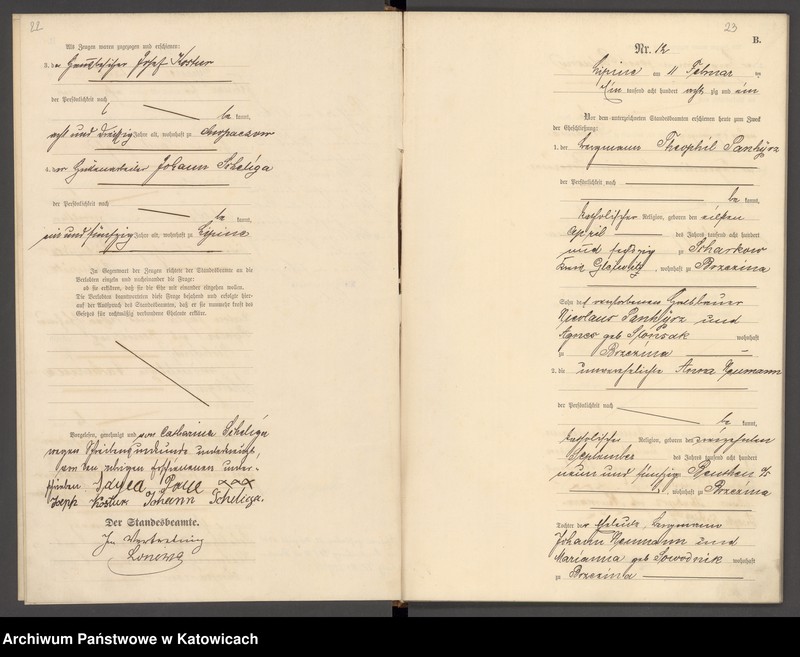 22
Als Zeugen waren zugezogen und erschienen:
3. der Hausbesitzer Josef Kostur
der Persönlichkeit nach
be kannt,
acht und dreißig Jahre alt, wohnhaft zu Chropaczow
4. der Hüttenarbeiter Johann Scheliga
der Persönlichkeit nach
be kannt,
ein und fünfzig Jahre alt, wohnhaft zu Lipine
In Gegenwart der Zeugen richtete der Standesbeamte an die
Verlobten einzeln und nacheinander die Frage:
ob sie erklären, daß sie die Ehe mit einander eingehen wollen.
Die Verlobten beantworteten diese Frage bejahend und erfolgte hier-
auf der Ausspruch des Standesbeamten, daß er sie nunmehr kraft des
Gesetzes für rechtmäßig verbundene Eheleute erkläre.
Vorgelesen, genehmigt und von Catharina Scheliga
wegen Schreibensunkunde unterkreuzt,
von den übrigen Erschienenen unter-
schrieben. xxx
Josef Kostur Johann Scheliga.
Der Standesbeamte.
In Vertretung
23
B.
Nr. 12
Lipine am 11 Februar
Ein tausend acht hundert acht zig und ein
Vor dem unterzeichneten Standesbeamten erschienen heute zum Zweck
der Eheschließung:
1. der Bergmann Theophil
der Persönlichkeit nach
be kannt,
katholischer Religion, geboren den eilften
April des Jahres tausend acht hundert
und sechzig zu Scharkow
Kreis Gleiwitz, wohnhaft zu Brzezina
Sohn des verstorbenen Halbbauer
Nicolaus und
Agnes geb wohnhaft
zu Brzezina
2. die unverehelichte Neumann
der Persönlichkeit nach
be kannt,
katholischer Religion, geboren den
September des Jahres tausend acht hundert
neun und fünfzig Beuthen O/S
, wohnhaft zu Brzezina
Tochter der Eheleute Bergmann
Johann Neumann und
Marianna geb Sowodnik wohnhaft
zu Brzezina
Archiwum Państwowe w Katowicach